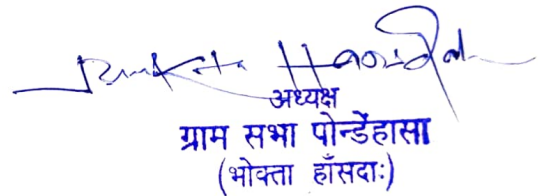 अध्यक्ष
ग्राम सभा पोन्डेंहासा
(भोक्ता हाँसदाः)